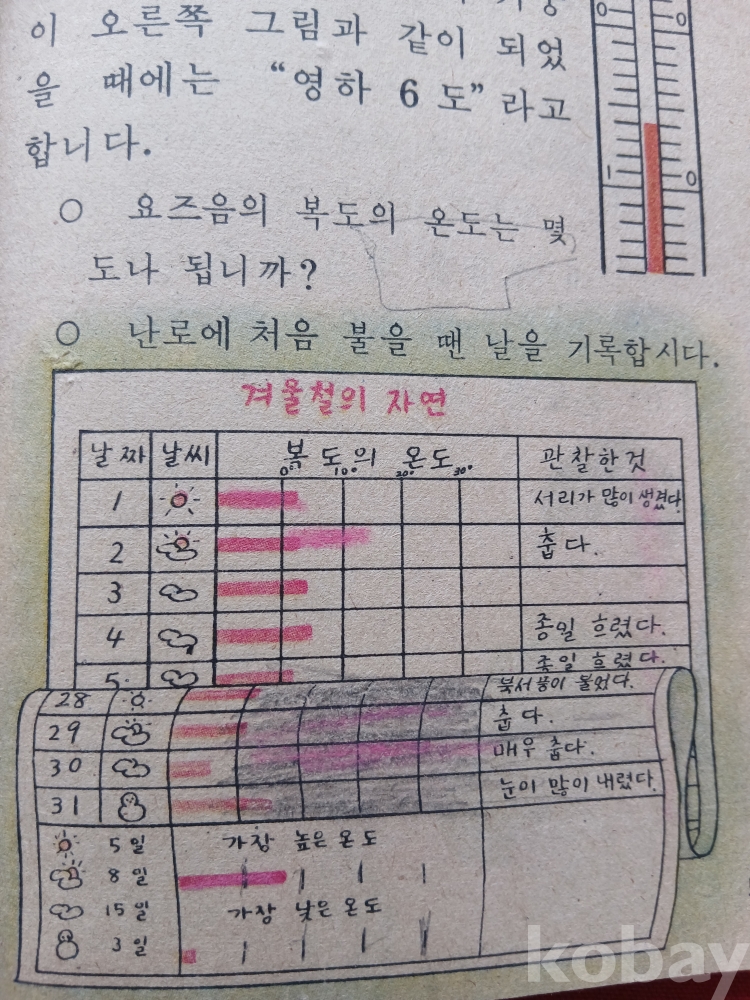 이 오른쪽 그림과 같이 되었
을 때에는 “영하 6 도” 라고
합니다.
0 0
1 0
○ 요즈음의 복도의 온도는 몇
도나 됩니까?
○ 난로에 처음 불을 땐 날을 기록합시다.
겨울철의 자연
날짜 날씨 복도의 온도 관찰한것
0° 10° 20° 30°
1 서리가 많이 생겼다
2 춥다.
3
4 종일 흐렸다.
5 종일 흐렸다.
28 북서풍이 불었다.
29 춥다.
30 매우 춥다.
31 눈이 많이 내렸다.
5 일 가장 높은 온도
8 일
15 일 가장 낮은 온도
3 일
kobay